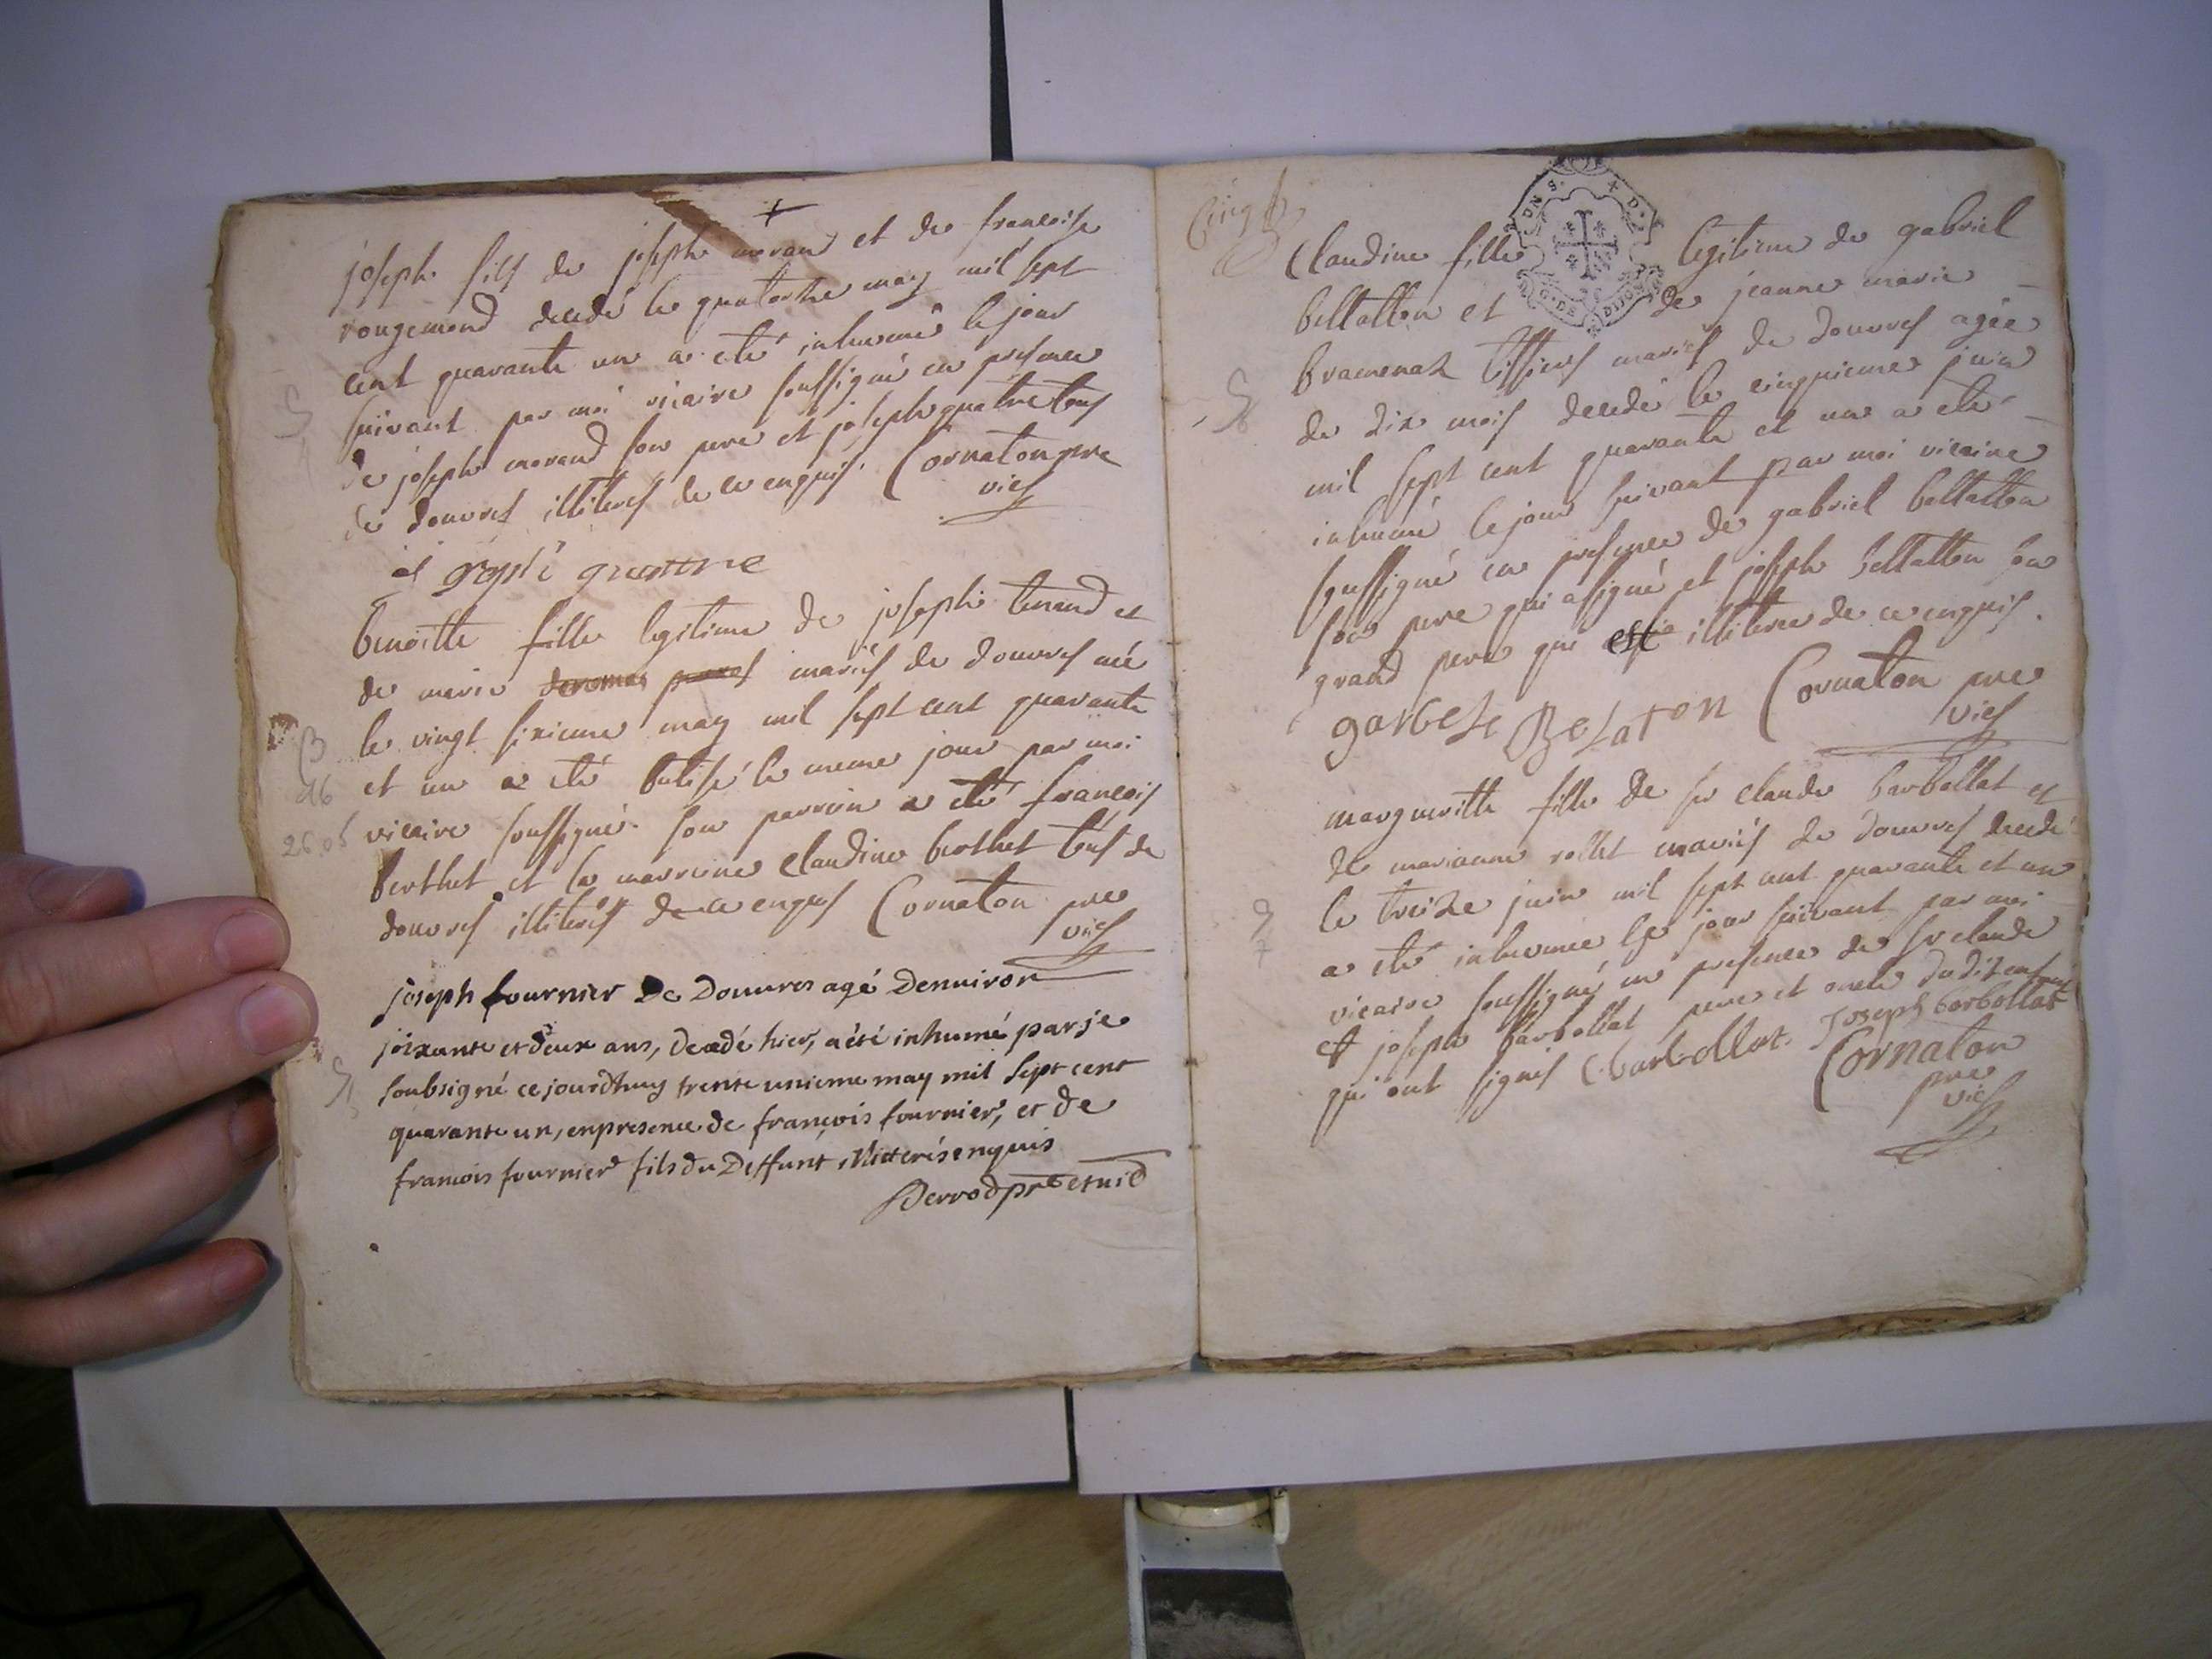 +
joseph fils de joseph morand et de francoise
rougemond decedé le quatorse may mil sept
cent quarante un a eté inhumé le jour
suivant par moi vicaire soussigné en presence
de joseph morand son pere et joseph quatre tous
de douvres illiterés de ce enquis. Cornaton pre
vics
benoitte fille legitime de joseph tenand et
de marie mariés de douvres née
le vingt sixieme may mil sept cent quarante
et un a eté batisé le meme jour par moi
vicaire soussigné. son parrein a eté françois
berthet et la marreine claudine berthet tous de
douvres illiterés de ce enquis Cornaton pre
vics
B
26.05
joseph fournier De Douures agé Denuiron
soixante et deux ans, decedé hier, a été inhumé par je
soubsigné ce jourdhuy trente unieme may mil sept cent
quarante un, en presence de françois fournier, et de
francois fournier fils du Deffunt illiterés enquis
Derrod pre et vic
Claudine fille legitime de gabriel
beltatton et de jeanne marie
bramenas tissiers mariés de douvres agée
de dix mois decedé le cinquieme juin
mil sept cent quarante et un a eté
inhumé le jour suivant par moi vicaire
soussigné en presence de gabriel beltatton
son pere qui a signé et joseph beltatton son
grand pere qui est illiteree de ce enquis.
Cornaton pre
vics
margueritte fille de sr claude barbollat et
de marianne rollet mariés de douvres decedé
le treize juin mil sept cent quarante et un
a eté inhumée le jour suivant par moi
vicaire soussigné en presence de sr claude
et joseph barbollat pere et oncle
qui ont signés C barbollat. Joseph barbollat
Cornaton
pre
vics
S. D. G. DE DIJON